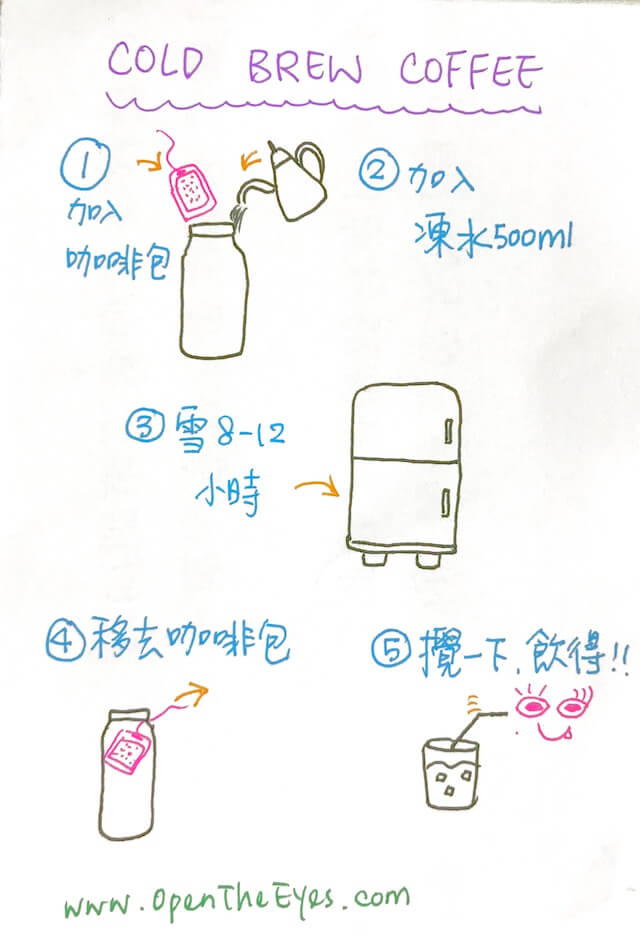 COLD BREW COFFEE
① 加入
咖啡包
② 加入
凍水500ml
③ 雪8-12
小時
④ 移去咖啡包
⑤ 攪一下, 飲得!!
www.OpenTheEyes.com